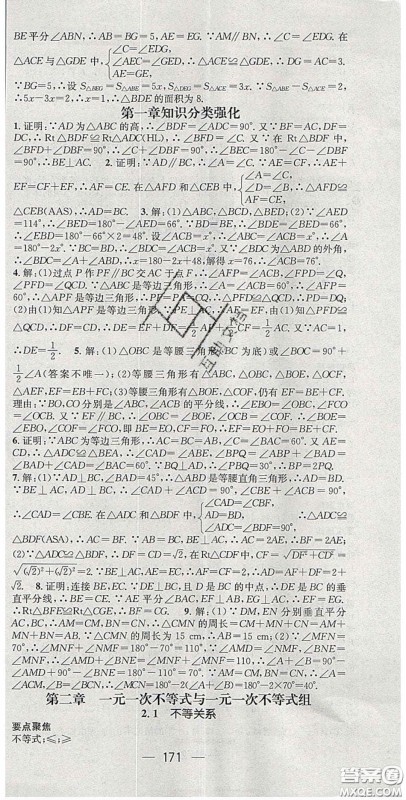 BE平分∠ABN,∴AB=BG=5,∴AE=EG.∵AM∥BN,∴∠C=∠EDG.在
△ACE与△GDE中,{∠C=∠EDG,∠ACE=∠GED,AE=GE,
∵BG=5,∴设S△BEG=S△ABE=5x,S△DEG=S△ACE=3x.∵S△ABE-S△ACE=2,
∴5x-3x=2,∴x=1,∴△BDE的面积为8.
第一章知识分类强化
1.证明:∵AD为△ABC的高,∴∠BDF=∠ADC=90°.又∵BF=AC,DF=
DC,∴Rt△BDF≌Rt△ADC(HL),∴∠BFD=∠C.又∵在Rt△BDF中,
∠BFD+∠FBD=90°,∴∠C+∠FBD=90°.∵∠C+∠FBD+∠BEC=180°,
∴∠BEC=90°,∴BE⊥AC. 2.证明:∵AD∥BC,∴∠A=∠C.∵AE=CF,∴AE+
EF=CF+EF,即AF=CE.在△ADF和△CEB中,{∠A=∠C,∠D=∠B,AF=CE,∴△ADF≌
△CEB(AAS),∴AD=BC. 3.解:(1)△ABC,△BCD,△BED (2)∵∠AED
=114°,∴∠BED=180°-∠AED=66°.∵BD=BE,∴∠BDE=∠BED=66°,
∴∠EBD=180°-66°×2=48°.设∠ACB=x°,∵AB=AC,∴∠ABC=∠ACB=x°,∴∠A
=180°-2x°.∵BC=BD,∴∠BDC=∠ACB=x°.又∵∠BDC为△ABD的外角,
∴∠BDC=∠A+∠ABD,∴x=180-2x+48,解得x=76,∴∠ACB=76°.
4.解:(1)过点P作PF∥BC交AC于点F,∴∠AFP=∠ACB,∠FPD=∠Q,
∠PFD=∠QCD.∵△ABC是等边三角形,∴∠A=∠ACB=60°,∴∠A=∠AFP=60°,
∴△APF是等边三角形,∴PF=PA=CQ,∴△PFD≌△QCD,∴PD=DQ.
(2)由(1)知△APF是等边三角形,∵PE⊥AC,∴AE=EF.由(1)知△PFD≌
△QCD,∴DF=CD,∴DE=EF+DF=1/2AF+1/2CF=1/2AC.又∵AC=1,
∴DE=1/2. 5.解:(1)△OBC是等腰三角形(BC为底)或∠BOC=90°+
1/2∠A(答案不唯一);(2)等腰三角形有△ABC,△OBC,△EBO,△CFO,
△AEF,EF=BE+FC;(3)等腰三角形有△EBO,△CFO,仍有EF=BE+CF.理
由:∵BO,CO分别是∠ABC,∠ACB的平分线,∴∠EBO=∠OBC,∠FCO
=∠OCB.又∵EF∥BC,∴∠EOB=∠OBC,∠FOC=∠OCB,∴∠EBO=
∠EOB,∠FOC=∠FCO,∴BE=OE,CF=OF,∴EF=OE+OF=BE+CF.
6.证明:∵△ABC为等边三角形,∴AC=BC=AB,∠C=∠BAC=60°.又∵CD
=AE,∴△ADC≌△BEA,∴∠CAD=∠ABE,∴∠BPQ=∠ABP+∠BAD=
∠BAD+∠CAD=∠BAC=60°.∵BQ⊥AD,∴∠PBQ=30°,∴BP=2PQ.
7.解:∵AD⊥BC,∠BAD=45°,∴△ABD是等腰直角三角形,∴AD=BD.
∵BE⊥AC,AD⊥BC,∴∠CAD+∠ACD=90°,∠CBE+∠ACD=90°,
∴∠CAD=∠CBE.在△ADC和△BDF中,{∠CAD=∠CBE,AD=BD,∠ADC=∠BDF=90°,∴△ADC≌
△BDF(ASA),∴AC=BF,DF=CD=√2.在Rt△CDF中,CF=√(DF²+CD²)=
√((√2)²+(√2)²)=2.∵BE⊥AC,AE=EC,∴AF=CF=2,∴AD=AF+DF=2+
√2. 8.证明:连接BE,EC.∵DE⊥BC,且D是BC的中点,∴DE是BC的垂
直平分线,∴BE=CE.∵AE平分∠BAC,EF⊥AB,EG⊥AC,∴EF=EG,
∴Rt△BFE≌Rt△CGE,∴BF=CG. 9.解:(1)∵DM,EN分别垂直平分
AC和BC,∴AM=CM,BN=CN,∴△CMN的周长=CM+MN+CN=AM+
MN+BN=AB.∵△CMN的周长为15 cm,∴AB=15 cm;(2)∵∠MFN=
70°,∴∠MNF+∠NMF=180°-70°=110°.∵∠AMD=∠NMF,∠BNE=
∠MNF,∴∠AMD+∠BNE=∠MNF+∠NMF=110°,∴∠A+∠B=90°-
∠AMD+90°-∠BNE=180°-110°=70°.∵AM=CM,BN=CN,∴∠A=
∠ACM,∠B=∠BCN,∴∠MCN=180°-2(∠A+∠B)=180°-2×70°=40°.
第二章 一元一次不等式与一元一次不等式组
2.1 不等关系
要点聚焦
不等式;≤;≥
171